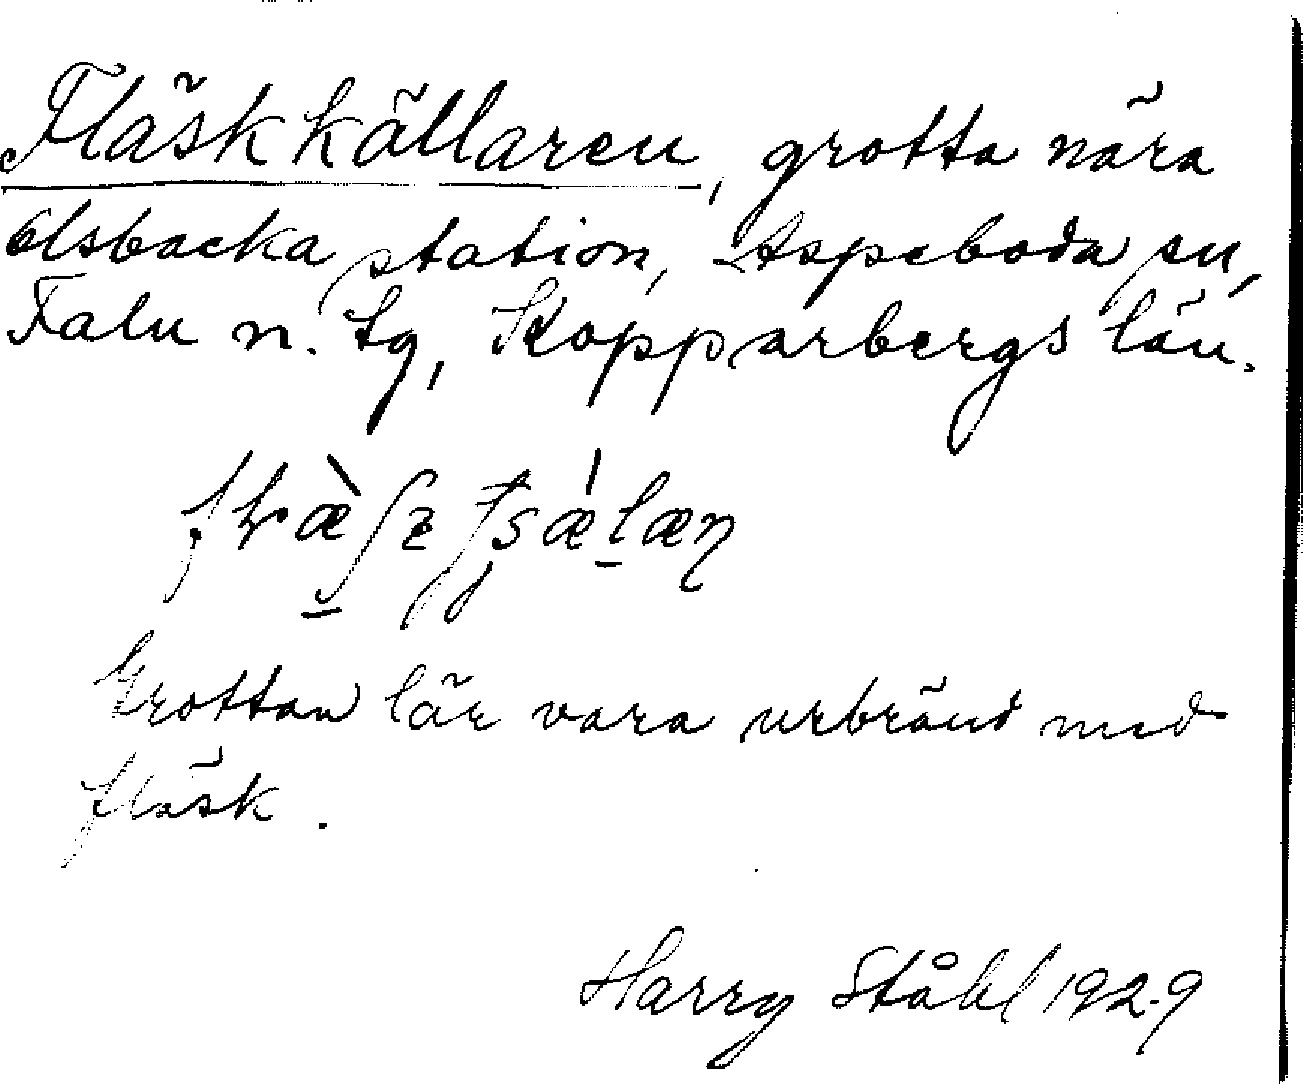 Fläskkällaren, grotta nära
Olsbacka station, Aspeboda sn,
Falu n. tg, Kopparbergs län.
Grottan lär vara urbränd med
fläsk.
Harry Ståhl 1929